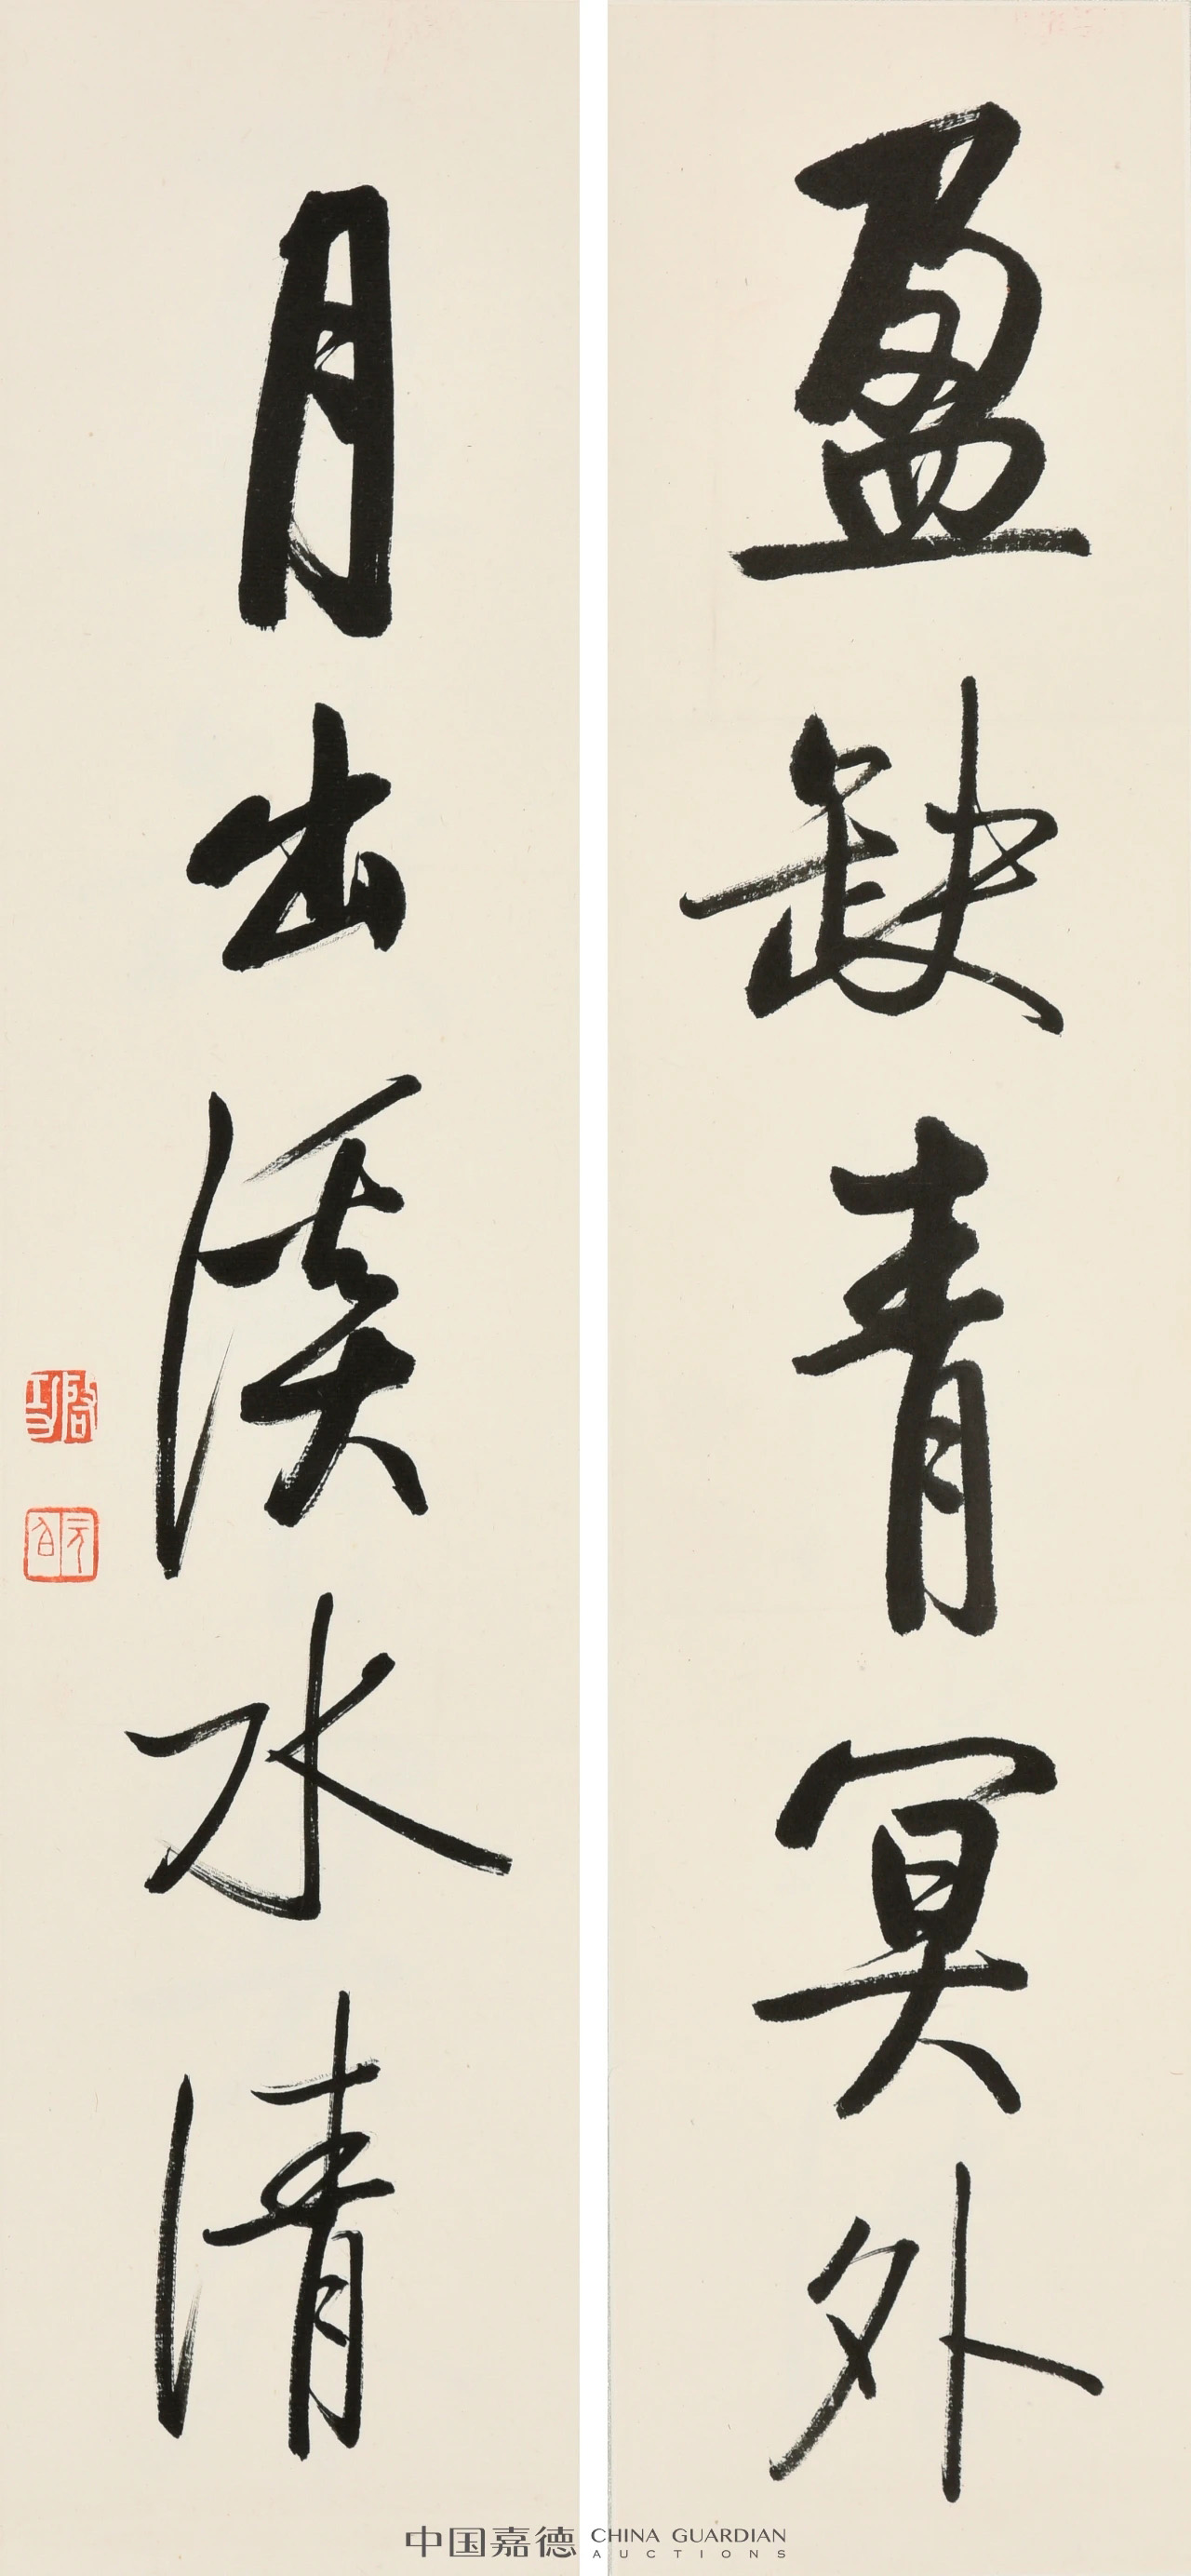 盈缺青冥外
月出溪水清
啓功
元白
中国嘉德 CHINA GUARDIAN
AUCTIONS